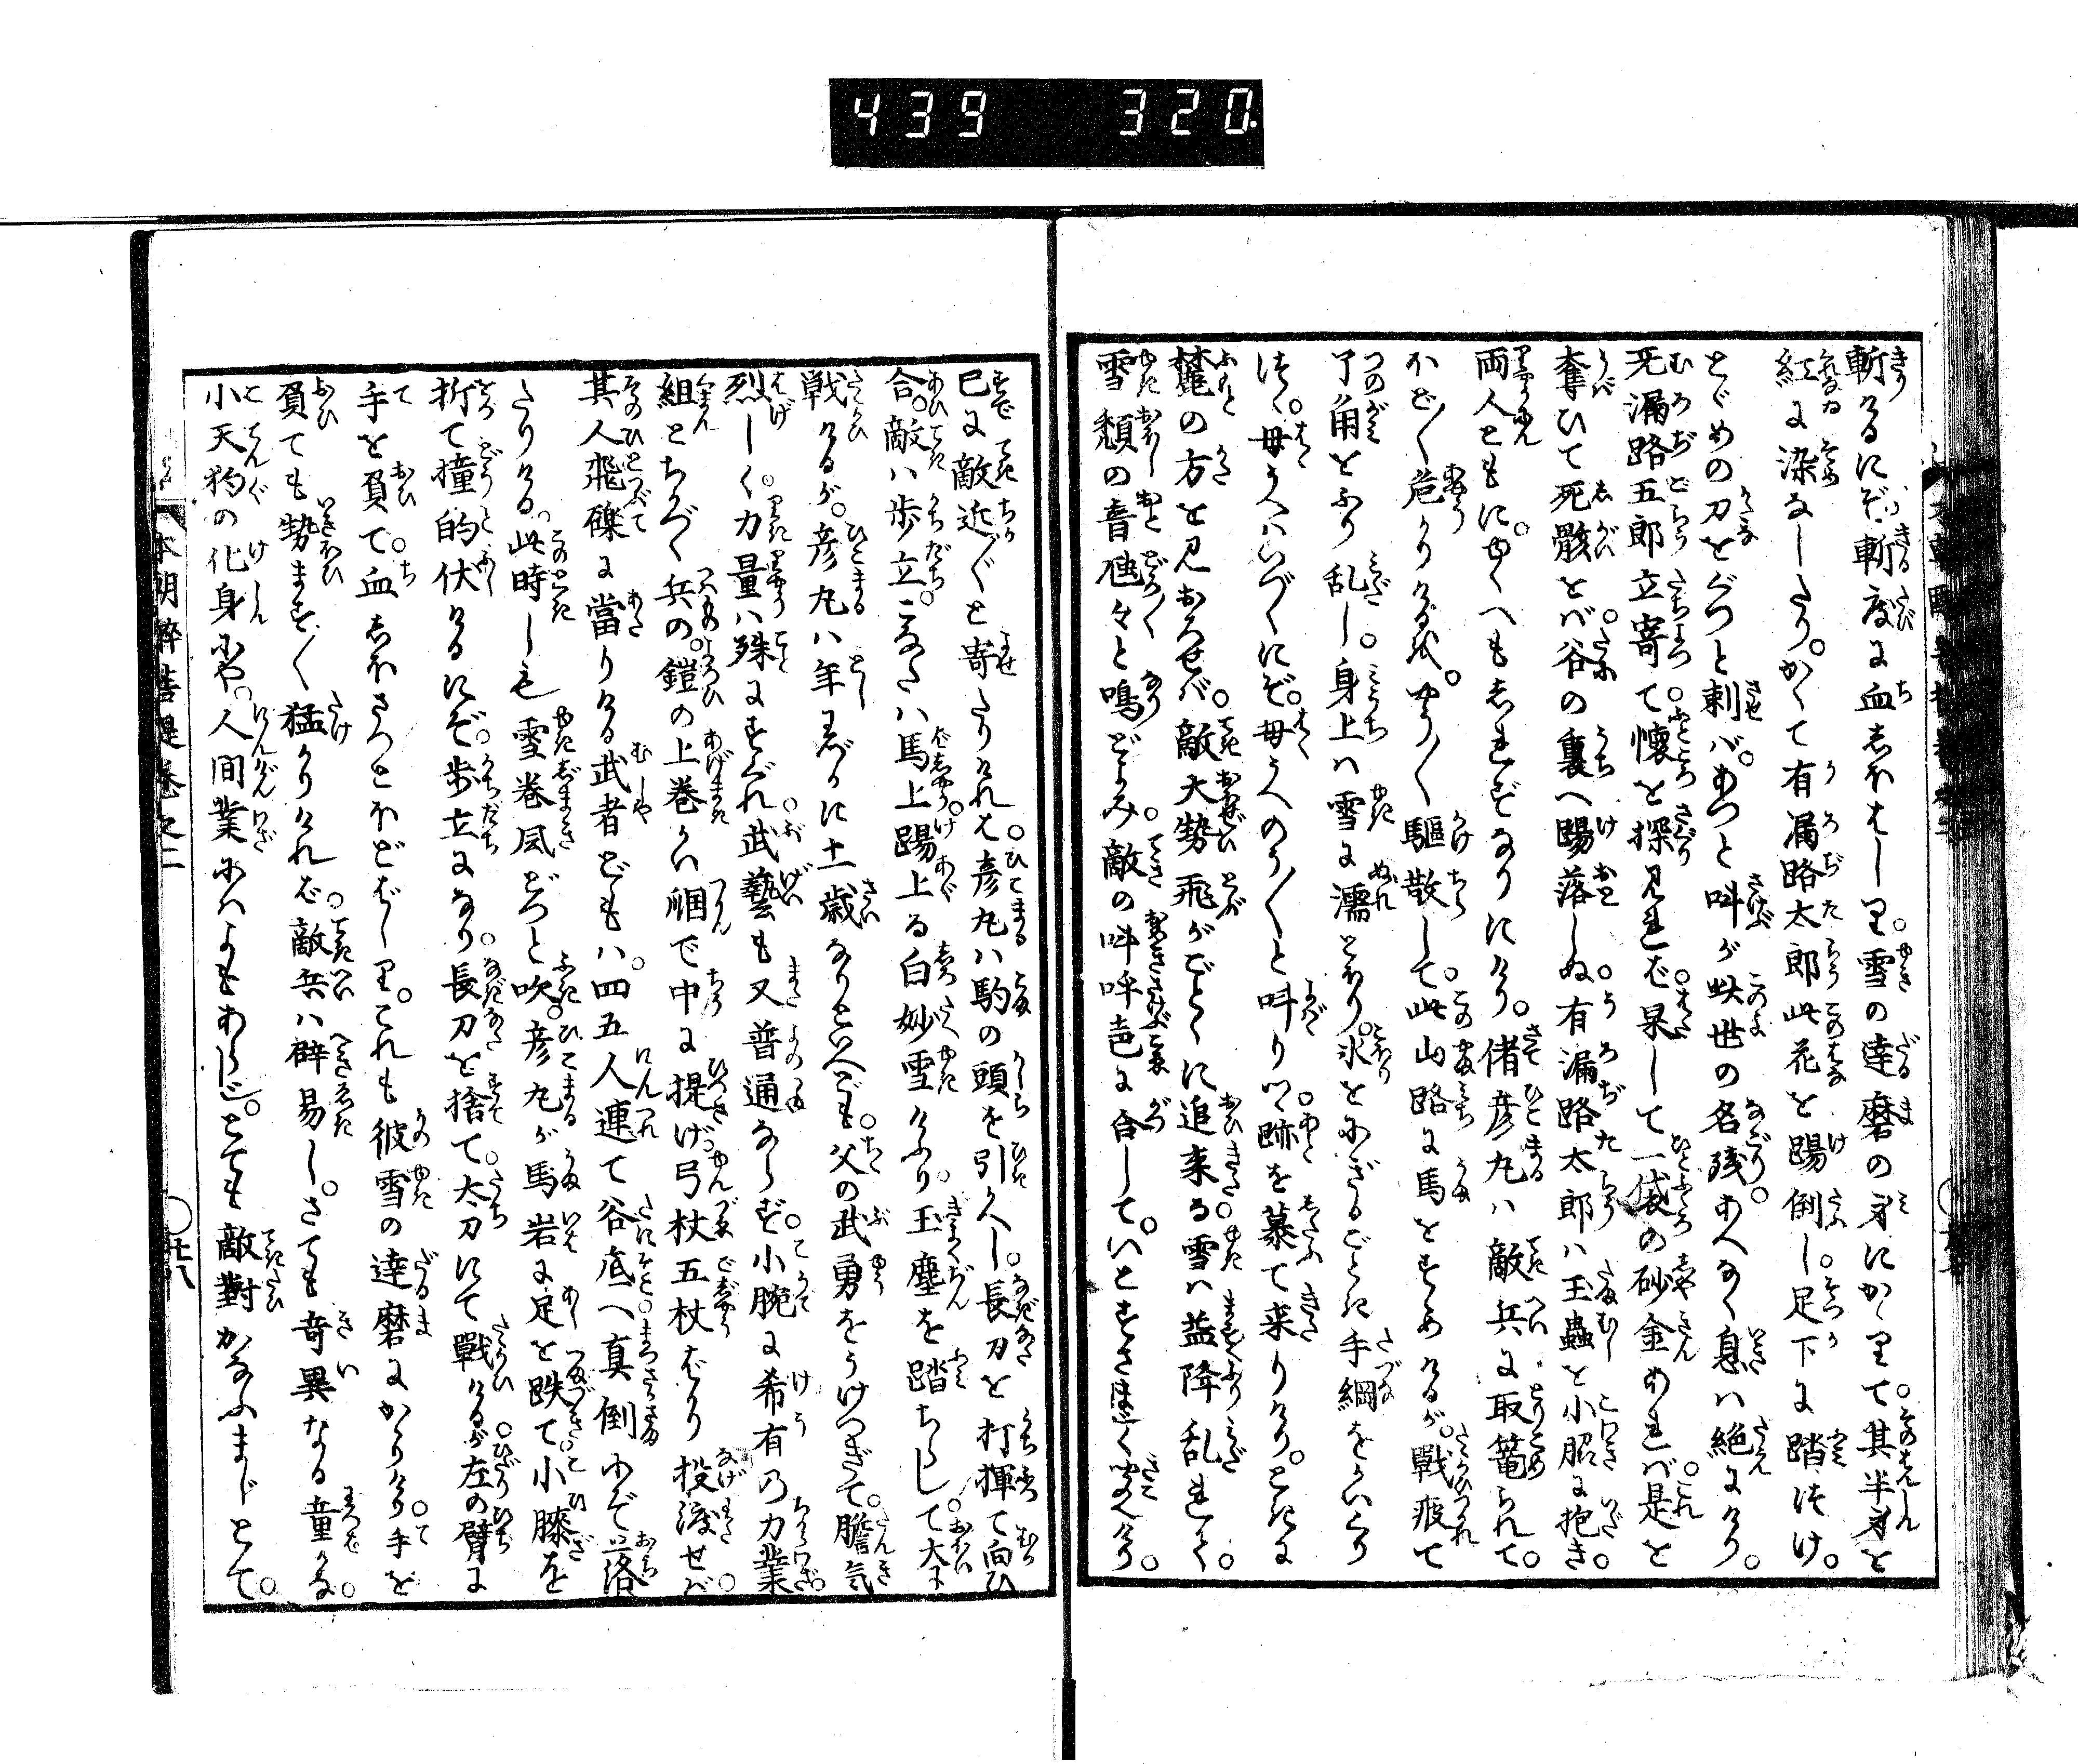 439 320.
斬るにぞ斬度に血しほはしり。雪の達磨の身にかゝりて。其半身を
紅に染なしたり。かくて有漏路太郎此花を踢倒し。足下に踏つけ。
とゞめの刀をぐつと刺ば。あつと叫が此世の名残あへなく息は絶にけり。
无漏路五郎立寄て。懐を探見れば。果して一袋の砂金あれば。是を
奪ひて死骸をば。谷の裏へ踢落しぬ。有漏路太郎は玉蟲を小脇に抱き。
両人ともに。ゆくへもしれずなりにけり。偖彦丸は敵兵に取篭られて。
かず〳〵危かりけるが。やう〳〵駆散して。此山路に馬をすゝめけるが。戦疲て
了角をふり乱し。身上は雪に濡とほり。氷をにぎるごとき手綱をかいくり
つゝ。母うへはいづくにぞ。母うへのう〳〵と叫りつ。跡を慕て来りけり。ときに
麓の方を見おろせば。敵大勢飛がごとくに追来る。雪は益降乱れて。
雪頽の音𪗱々と鳴どよみ。敵の叫呼声に合して。いとすさまじく聞へけり。
已に敵近〴〵と寄たりければ。彦丸は駒の頭を引かへし。長刀を打揮て向ひ
合。敵は歩立。こなたは馬上。踢上る白妙雪けふり。玉塵を踏ちらして。大に
戦けるが。彦丸は年わづかに十一歳なりといへども。父の武勇をうけつぎて。膽気
烈しく。力量は殊にすぐれ。武藝も又普通ならず。小腕に希有の力業。
組とちかづく兵の。鎧の上巻かい爴で中に提げ。弓杖五杖ばかり投渡せば。
其人飛礫に當りける武者どもは。四五人連て谷底へ。真倒にぞ落
たりける。此時しも雪巻風どつと吹。彦丸が馬岩に足を跌て。小膝を
折て撞的伏けるにぞ。歩立になり。長刀を捨て。太刀にて戦けるが。左の臂に
手を負て。血しほさつとほどばしり。これも彼雪の達磨にかゝりけり。手を
負ても勢ます〳〵猛かりければ。敵兵は辟易し。さても奇異なる童かな。
小天狗の化身にや。人間業にはよもあらじ。とても敵對かなふまじとて。
本朝酔菩提巻之二